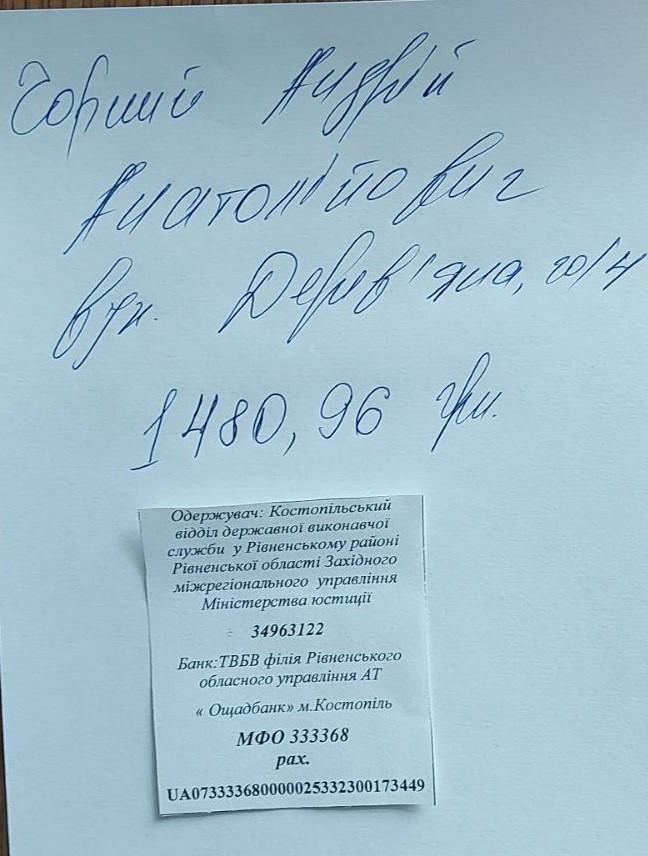 Чорний Андрій
Анатолійович
вул. Дерев'яна,
1480,96 грн.
Одержувач: Костопільський
відділ державної виконавчої
служби у Рівненському районі
Рівненської області Західного
міжрегіонального управління
Міністерства юстиції
34963122
Банк:ТВБВ філія Рівненського
обласного управління АТ
« Ощадбанк» м.Костопіль
МФО 333368
рах.
UA073333680000025332300173449